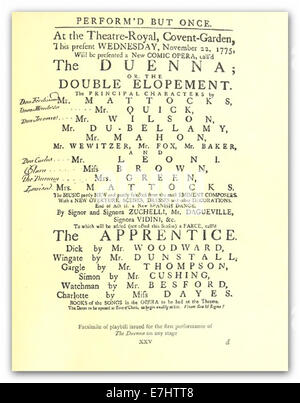 PERFORM'D BUT ONCE.
At the Theatre-Royal, Covent-Garden,
This present WEDNESDAY, November 22, 1775,
Will be presented a New COMIC OPERA, call'd
The DUENNA;
OR THE
DOUBLE ELOPEMENT.
The PRINCIPAL CHARACTERS by
Don Ferdinand Mr. MATTOCKS,
Mr. QUICK,
Mr. WILSON,
Mr. DU-BELLAMY,
Mr. MAHON,
Mr. WEWITZER, Mr. FOX, Mr. BAKER,
AND
Don Carlos Mr. LEONI.
Clara Miss BROWN,
The Duenna Mrs. GREEN,
Louisa Mrs. MATTOCKS.
The MUSIC partly NEW and partly selected from the most EMINENT COMPOSERS.
With a NEW OVERTURE, SCENES, DRESSES and other DECORATIONS.
End of Act II. a New SPANISH DANCE,
By Signor and Signora ZUCHELLI, Mr. DAGUEVILLE,
Signora VIDINI, &c.
To which will be added (not acted this Season) a FARCE, call'd
The APPRENTICE.
Dick by Mr. WOODWARD,
Wingate by Mr. DUNSTALL,
Gargle by Mr. THOMPSON,
Simon by Mr. CUSHING,
Watchman by Mr. BESFORD,
Charlotte by Miss DAYES.
BOOKS of the SONGS in the OPERA to be had at the Theatre.
Facsimile of playbill issued for the first performance of
The Duenna on any stage
XXV d
alamy
E7HTT8